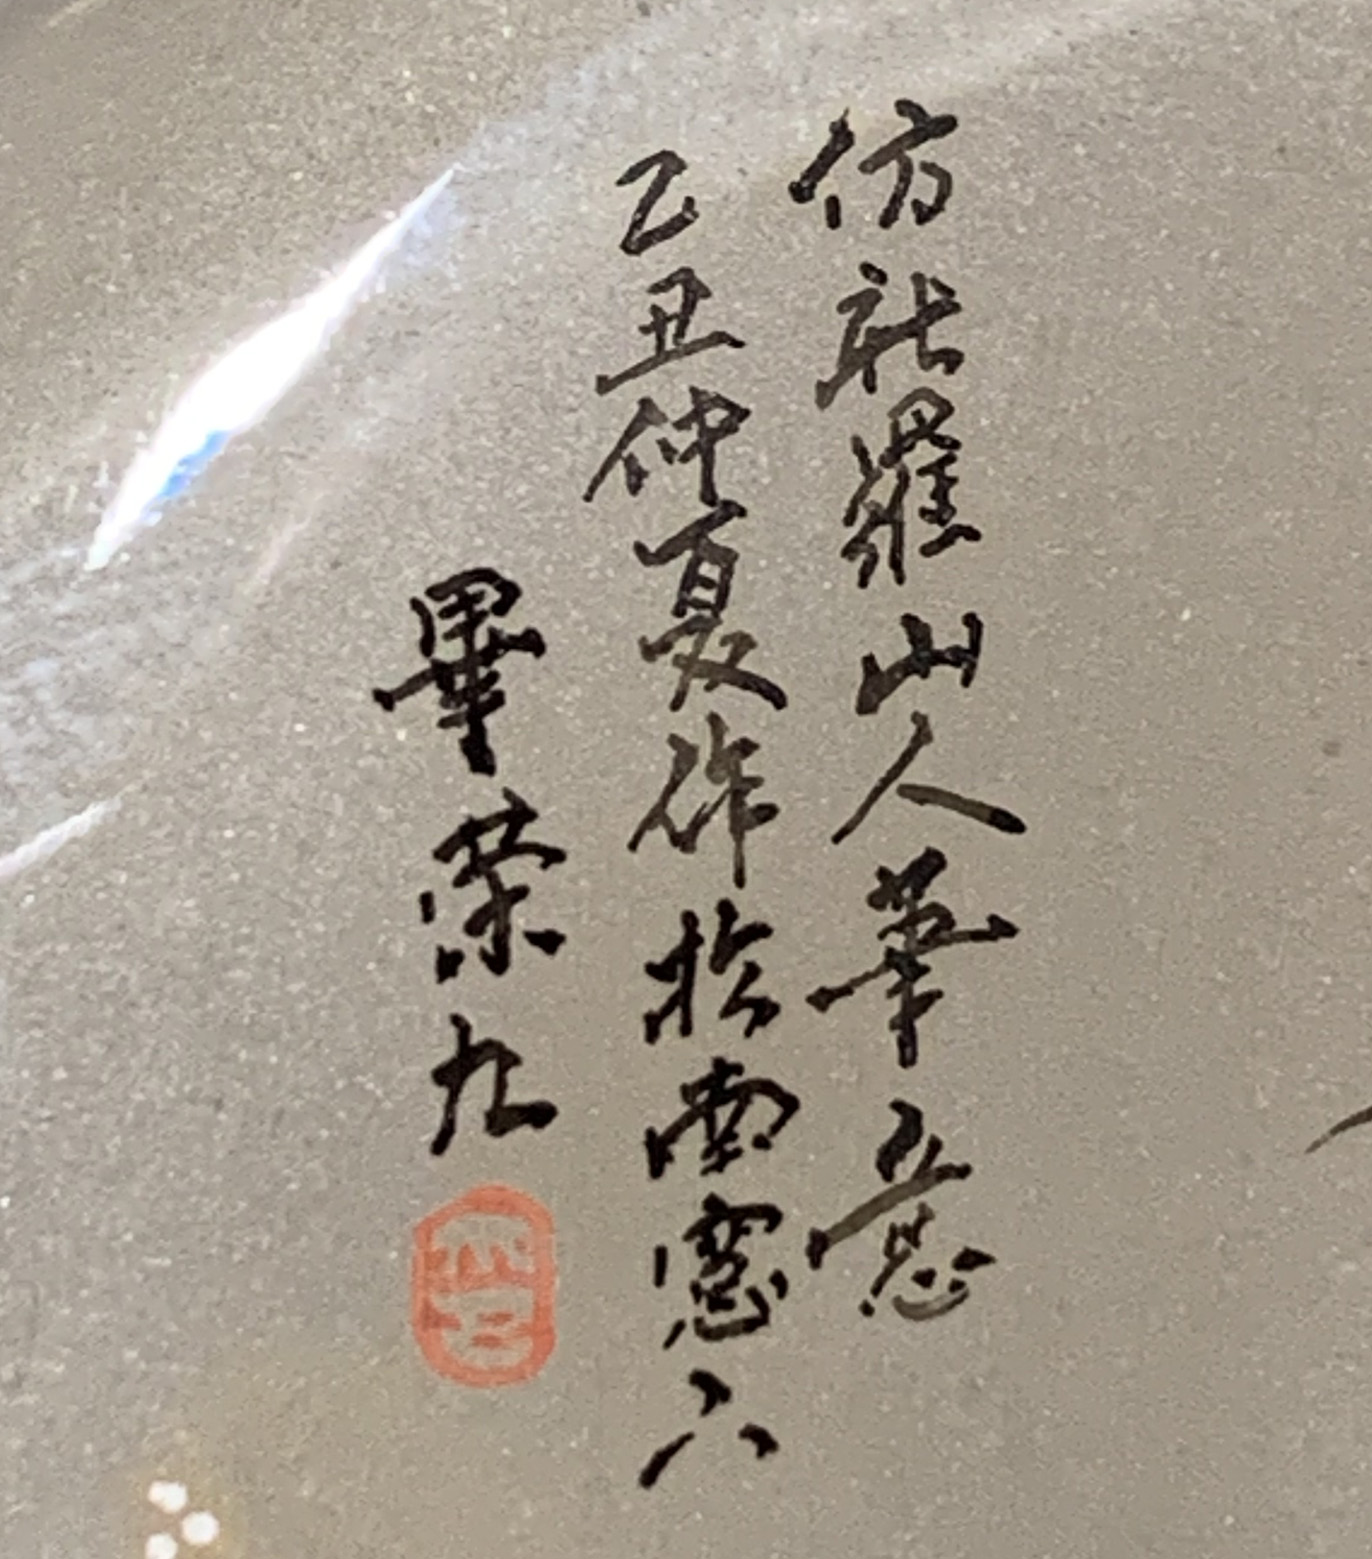 仿新羅山人筆意
乙丑仲夏作於南窗下
畢榮九